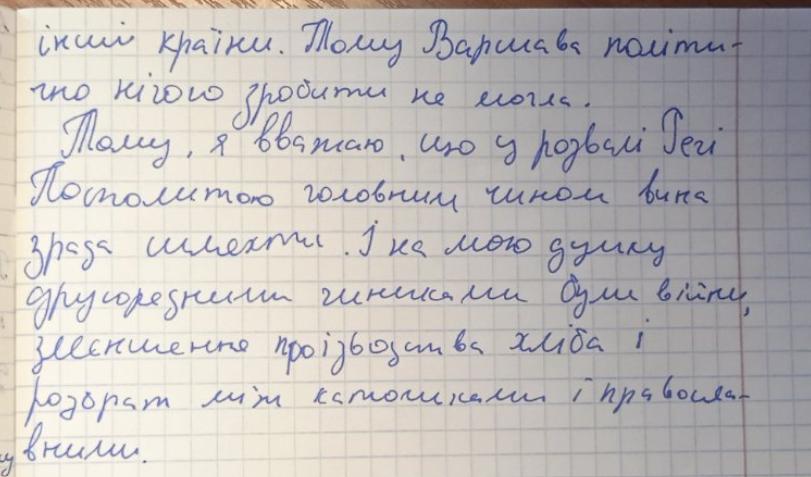 інші країни. Тому Варшава політи-
чно нічого зробити не могла.
Тому, я вважаю, що у розвалі Речі
Посполитою головним чином вина
зрада шляхти. І на мою думку
другорядними чиниками були війни,
зменшення проізводства хліба і
розбрат між католиками і правосла-
вними.